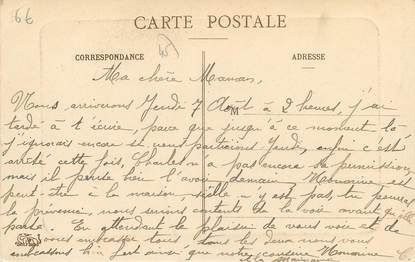 66
CARTE POSTALE
CORRESPONDANCE
ADRESSE
M
Ma chère Maman,
Nous arriverons Jeudi 7 Août à 2 heures, j'ai
tardé à t'écrire, parce que jusqu'à ce moment là
j'ignorais encore si nous partirions Jeudi, enfin c'est
arrêté cette fois, Charles n'a pas encore sa permission,
mais il pense bien l'avoir demain. Monanne est
peut-être à la maison, si elle n'y est pas, tu pourras
la prévenir, nous serions contents de la voir avant qu'elle
parte. En attendant le plaisir de vous voir et de
vous embrasser tous dans les deux nous vous
embrassons bien fort ainsi que notre